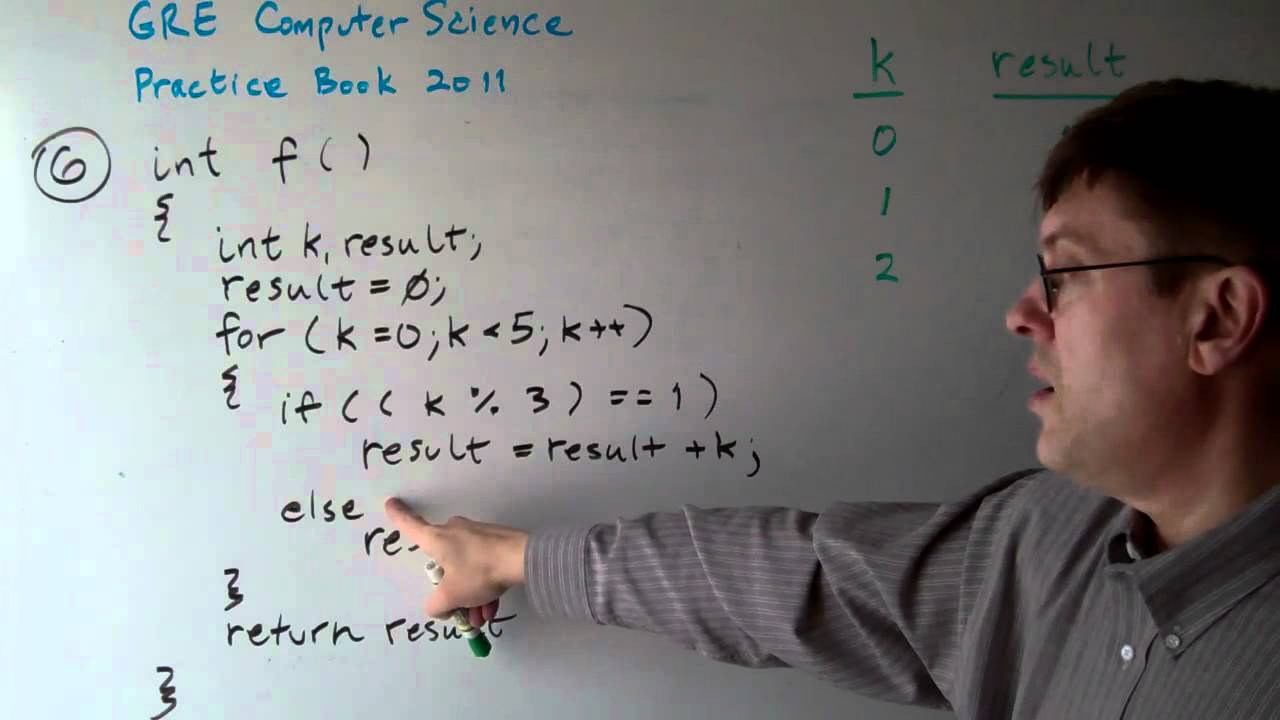 GRE Computer Science
Practice Book 2011
6 int f()
{
int k, result;
result = 0;
for (k=0; k<5; k++)
{ if (( k % 3 ) == 1 )
result = result + k;
else
}
return result
}
k result
0
1
2